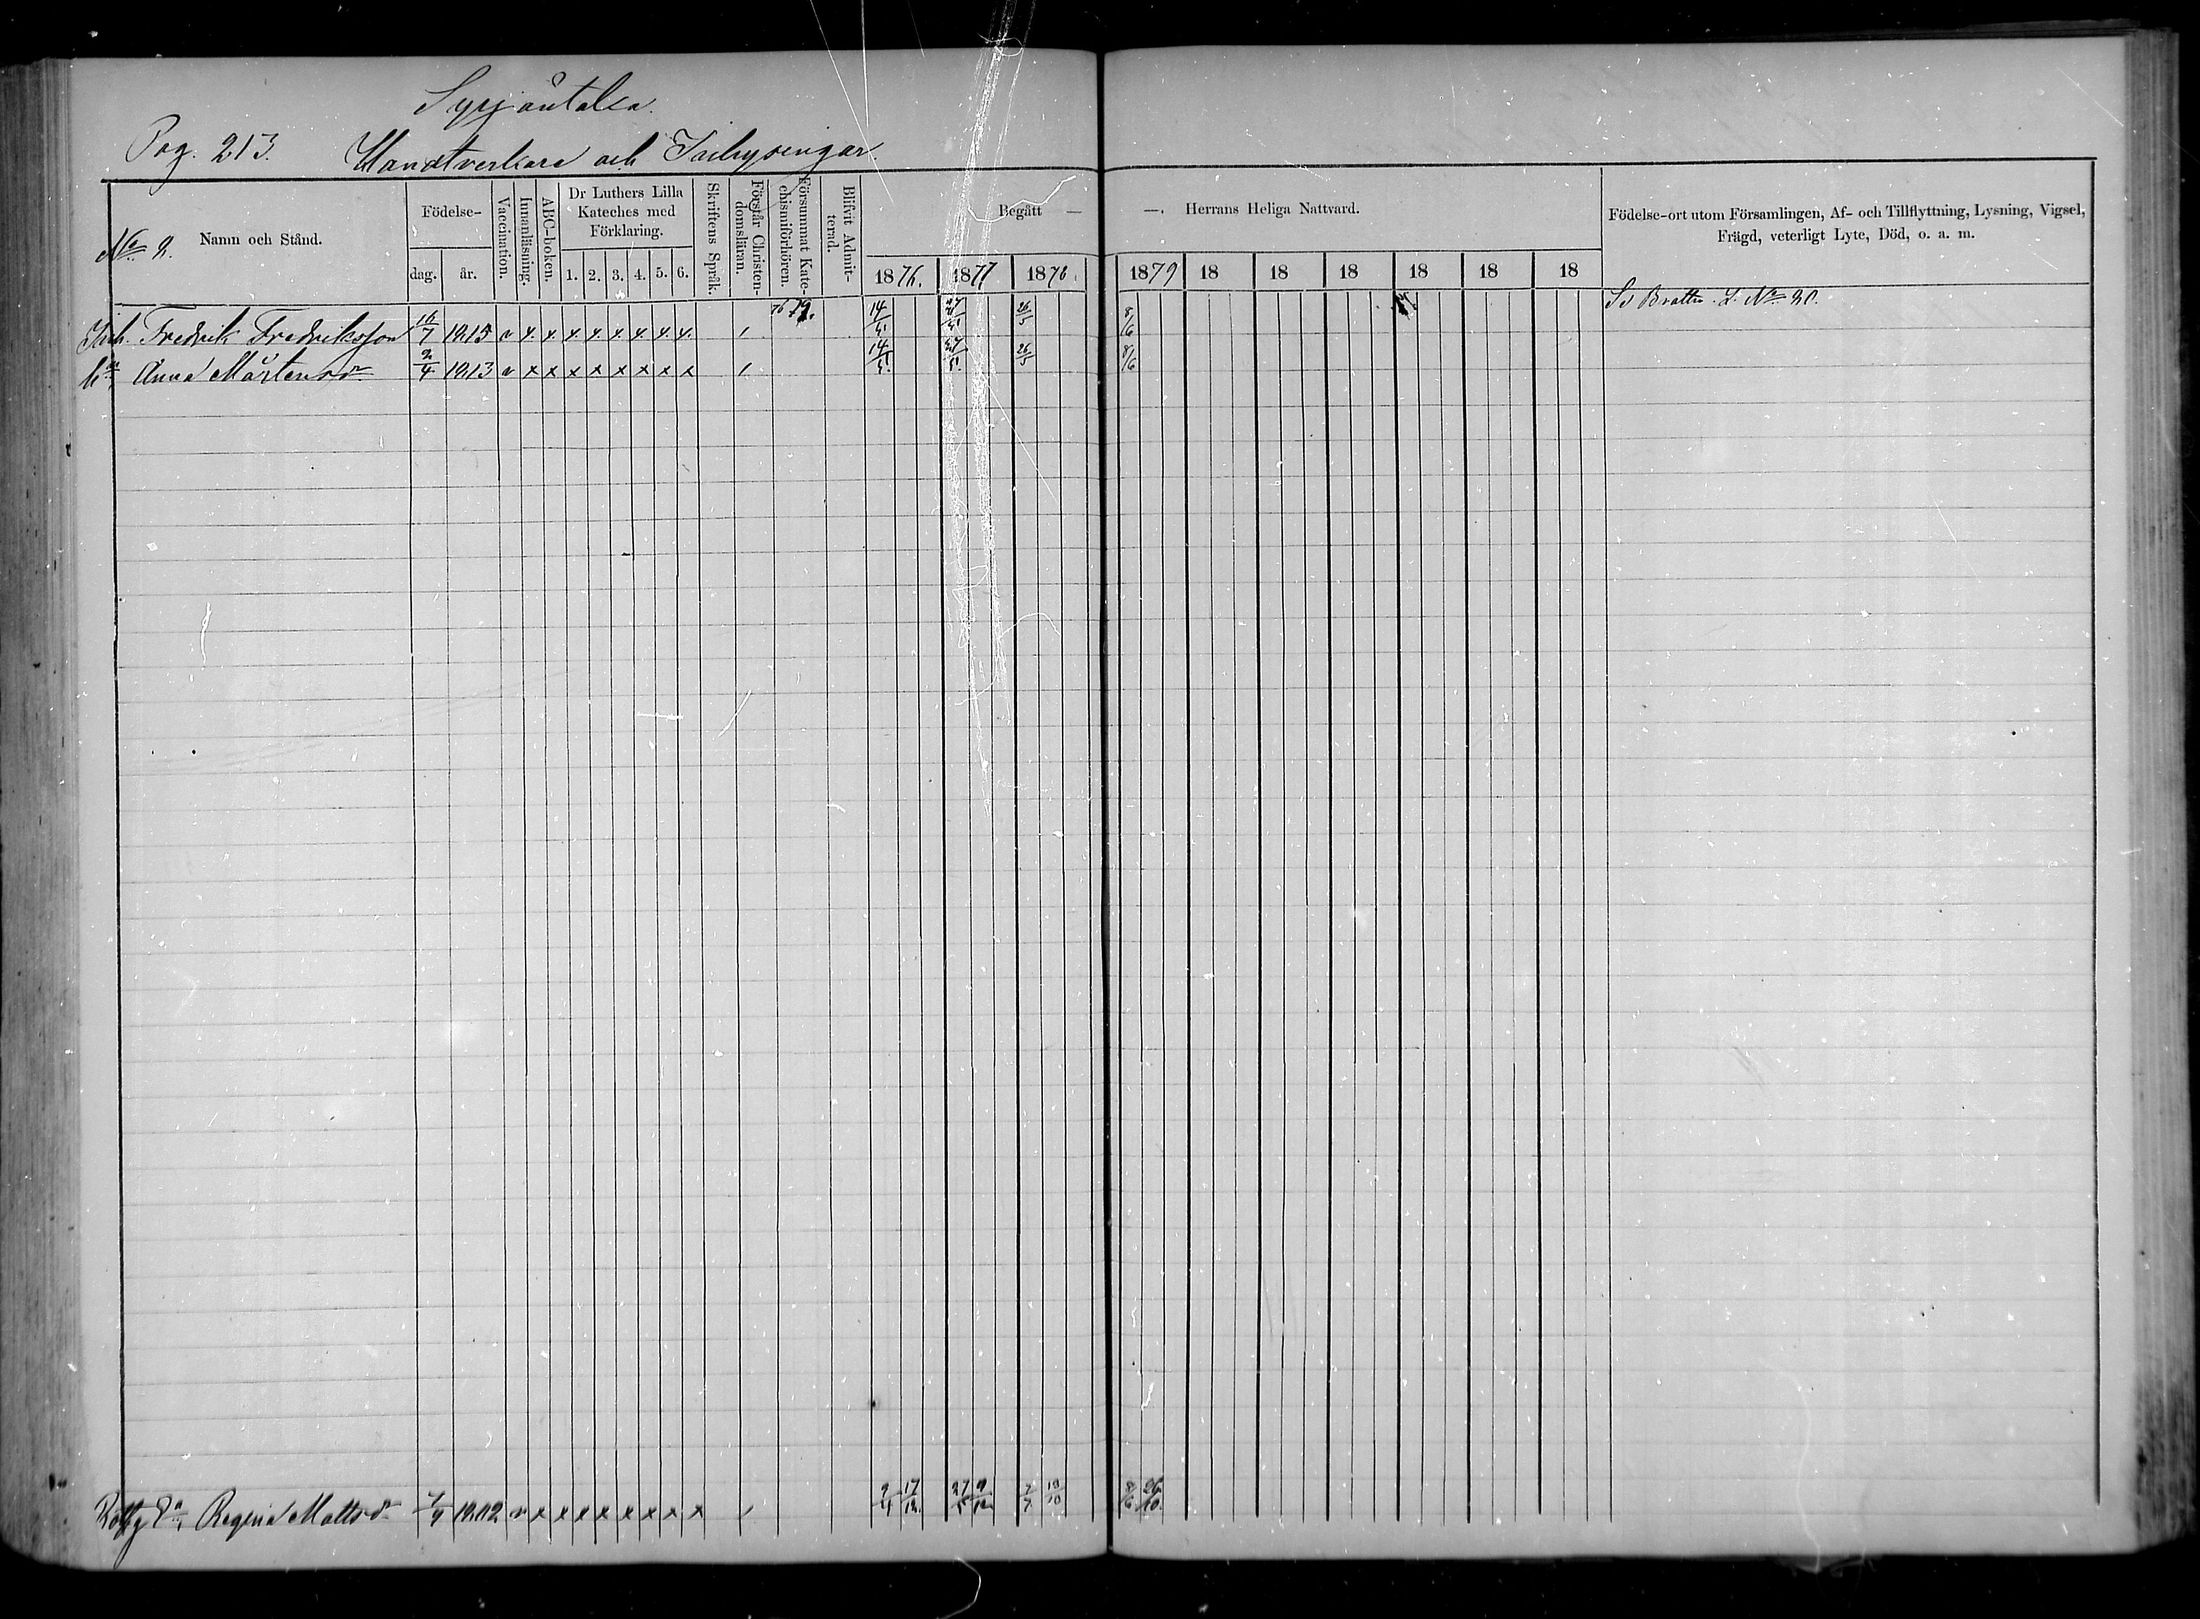 Syrjäntaka
Pag. 213. Handtverkare och Inhysingar
No 2. Namn och Stånd.
Födelse-
dag. år.
Vaccination.
Innanläsning.
ABC-boken.
Dr Luthers Lilla
Kateches med
Förklaring.
1. 2. 3. 4. 5. 6.
Skriftens Språk.
Förstår Christen-
domsläran.
Försummat Kate-
chismiförhören.
Blifvit Admit-
terad.
Begått — —. Herrans Heliga Nattvard.
1876. 1877 1878. 1879 18 18 18 18 18 18
Födelse-ort utom Församlingen, Af- och Tillflyttning, Lysning, Vigsel,
Frägd, veterligt Lyte, Död, o. a. m.
Inh. Fredrik Fredriksson 1815 v x x x x x x x x / 14/5 27/5 26/5 8/6
Anna Mårtensdr 2/4 1813 v x x x x x x x x / 14/5 27/5 26/5 8/6
Regina Mattsdr 1802 v x x x x x x x x x / 17/12 7/7 8/6 26/10